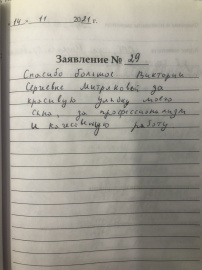 « 14 » 11 2021 г.
Заявление № 29
Спасибо большое Виктории
Сергиевне Митраковой за
красивую улыбку моего
сына, за профессионализм
и качественную работу